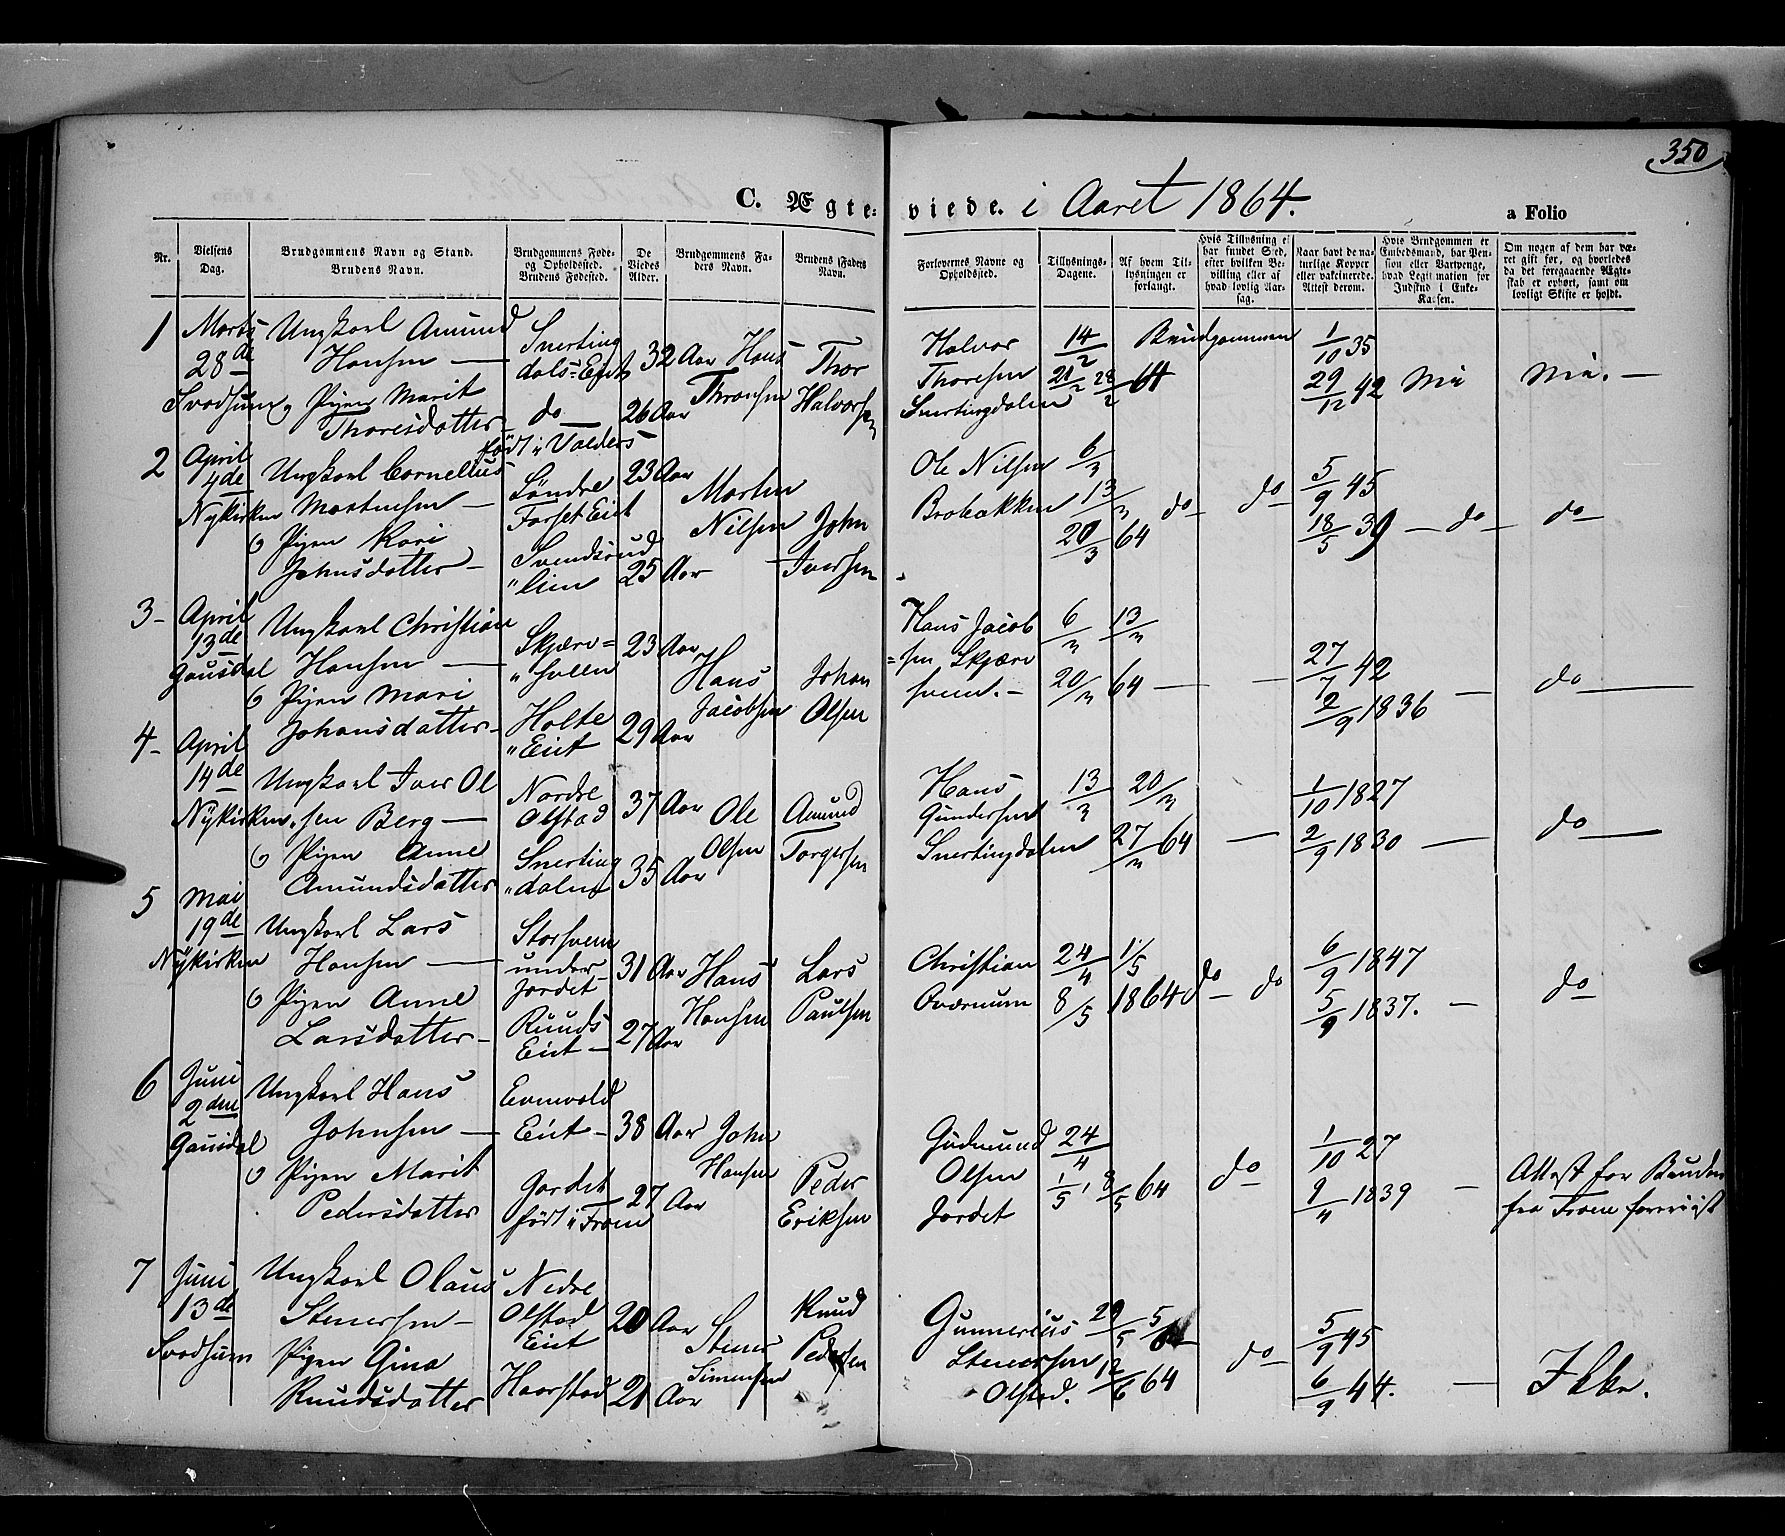 350
C. Ægte- viede. i Aaret 1864.
a Folio
Nr.
Vielsens Dag.
Brudgommens Navn og Stand. Brudens Navn.
Brudgommens Føde- og Opholdssted. Brudens Fødested.
De Viedes Alder.
Brudgommens Faders Navn.
Brudens Faders Navn.
Forlovernes Navne og Opholdssted.
Tillysnings-Dagene.
Af hvem Tillysningen er forlangt.
Hvis Tillysning ei har fundet Sted, efter hvilken Bevilling eller af hvad lovlig Aarsag.
Naar havt de naturlige Kopper eller vakcinerede. Attest derom.
Hvis Brudgommen er Embedsmand, har Pension eller Vartpenge, hvad Legitimation for Indskud i Enke-Kassen.
Om nogen af dem har været gift før, og hvorledes da det foregaaende Ægteskab er ophørt, samt om lovligt Skifte er holdt.
1
Marts 28de
Svadsum
Ungkarl Amund Hansen
og Pigen Marit Thoresdatter
Snertingdals-Eiet
do
32 Aar
26 Aar
Hans Thronsen
Thor Halvorsen
Halvor Thoresen Snertingdalen
14/2 21/2 28/2 64
Brudgommen
1/10 35
29/12 42
2
April 4de
Nykirken
Ungkarl Cornelius Mortensen
og Pigen Kari Johnsdatter
født i Valders
Søndre Forset Eiet
23 Aar
25 Aar
Morten Nilsen
John Iversen
Ole Nilsen Brobakken
6/3 13/3 20/3 64
do
do
5/9 45
18/5 39
do
do
3
April 13de
Gausdal
Ungkarl Christian Hansen
og Pigen Mari Johansdatter
Holte Eiet
23 Aar
29 Aar
Hans Jacobsen
Johan Olsen
Hans Jacobsen
6/3 13/3 20/3 64
27/7 42
2/9 1836
do
4
April 14de
Nykirken
Ungkarl Iver Olsen Berg
og Pigen Anne Amundsdatter
Nordre Olstad
Snertingdalen
37 Aar
35 Aar
Ole Olsen
Amund Torgersen
Hans Gundersen Snertingdalen
13/3 20/3 27/3 64
1/10 1827
2/9 1830
do
5
Mai 19de
Nykirken
Ungkarl Lars Hansen
og Pigen Anne Larsdatter
under Jordet
Ruuds Eiet
31 Aar
27 Aar
Hans Hansen
Lars Paulsen
Christian
24/4 1/5 8/5 1864
do
do
6/9 1847
5/9 1837.
do
6
Juni 2den
Gausdal
Ungkarl Hans Johnsen
og Pigen Marit Pedersdatter
Eiet
Jordet født i Fron
38 Aar
27 Aar
John Hansen
Peder Eriksen
Gudmund Olsen Jordet
24/4 1/5 8/5 64
do
1/10 27
9/4 1839
Attest for Bruden fra Fron
7
Juni 13de
Svadsum
Ungkarl Olaus Stenersen
Pigen Gina Knudsdatter
Nedre Olstad Eiet
Haarstad
20 Aar
21 Aar
Stener Simensen
Knud Pedersen
Gunnerius Stenersen Olstad.
29/5 5/6 12/6 64
do
5/9 45
6/9 44.
Ikke.